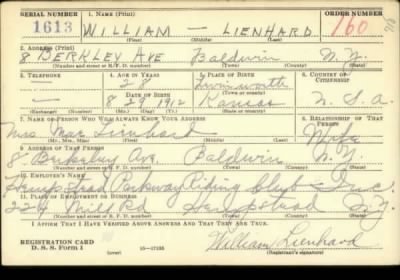 SERIAL NUMBER 1. NAME (Print) ORDER NUMBER
1613 WILLIAM — LIENHARD 160
(First) (Middle) (Last)
2. ADDRESS (Print)
8 BERKLEY AVE Baldwin N.Y.
(Number and street or R. F. D. number) (Town) (County) (State)
3. TELEPHONE 4. AGE IN YEARS 5. PLACE OF BIRTH 6. COUNTRY OF CITIZENSHIP
— 28
DATE OF BIRTH (Town or county)
— 8 29 1912 Kansas U. S. A.
(Exchange) (Number) (Mo.) (Day) (Yr.) (State or country)
7. NAME OF PERSON WHO WILL ALWAYS KNOW YOUR ADDRESS 8. RELATIONSHIP OF THAT PERSON
Mrs Mae Lienhard Wife
(Mr., Mrs., Miss) (First) (Middle) (Last)
9. ADDRESS OF THAT PERSON
8 Berkeley Ave. Baldwin N.Y.
(Number and street or R. F. D. number) (Town) (County) (State)
10. EMPLOYER'S NAME
Hempstead Parkway Riding Club Inc.
11. PLACE OF EMPLOYMENT OR BUSINESS
224 Mill Rd Hempstead N.Y.
(Number and street or R. F. D. number) (Town) (County) (State)
I AFFIRM THAT I HAVE VERIFIED ABOVE ANSWERS AND THAT THEY ARE TRUE.
REGISTRATION CARD
D. S. S. Form 1 16—17105 William Lienhard
(Registrant's signature)